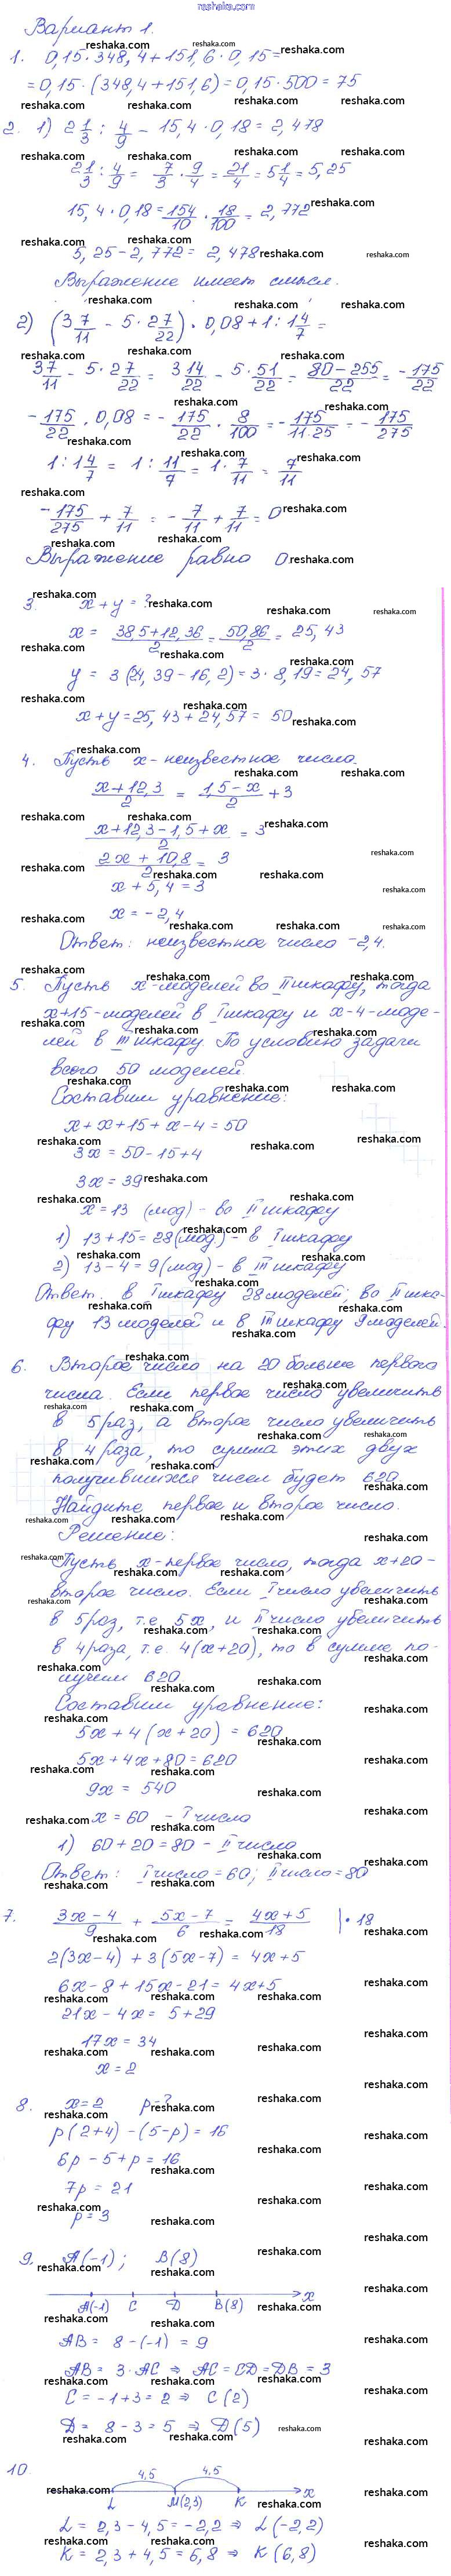 reshaka.com
Вариант 1.
1. 0,15·348,4+151,6·0,15=
=0,15·(348,4+151,6)=0,15·500=75
2. 1) 2 1/3 : 4/9 - 15,4·0,18=2,478
2 1/3 : 4/9 = 7/3 · 9/4 = 21/4 = 5 1/4 = 5,25
15,4·0,18=154/10 · 18/100 = 2,772
5,25-2,772= 2,478
Выражение имеет смысл.
2) (3 7/11 - 5·2 7/22)·0,08+1:1 4/7 =
3 7/11 - 5·2 7/22 = 3 14/22 - 5·51/22 = (80-255)/22 = -175/22
-175/22 · 0,08 = -175/22 · 8/100 = -175/(11·25) = -175/275
1:1 4/7 = 1:11/7 = 1·7/11 = 7/11
-175/275 + 7/11 = -7/11 + 7/11 = 0
Выражение равно 0.
3. x+y=?
x = (38,5+12,36)/2 = 50,86/2 = 25,43
y = 3(24,39-16,2)=3·8,19=24,57
x+y=25,43+24,57= 50
4. Пусть x-неизвестное число.
(x+12,3)/2 = (1,5-x)/2 +3
(x+12,3-1,5+x)/2 = 3
(2x+10,8)/2 = 3
x+5,4=3
x=-2,4
Ответ: неизвестное число -2,4.
5. Пусть x-моделей во II шкафу, тогда
x+15-моделей в I шкафу и x-4-моде-
лей в III шкафу. По условию задачи
всего 50 моделей.
Составим уравнение:
x+x+15+x-4=50
3x=50-15+4
3x=39
x=13 (мод)- во II шкафу
1) 13+15=28(мод)- в I шкафу
2) 13-4=9(мод)- в III шкафу
Ответ: в I шкафу 28 моделей; во II шка-
фу 13 моделей и в III шкафу 9 моделей.
6. Второе число на 20 больше первого
числа. Если первое число увеличить
в 5 раз, а второе число увеличить
в 4 раза, то сумма этих двух
получившихся чисел будет 620.
Найдите первое и второе число.
Решение:
Пусть x-первое число, тогда x+20-
второе число. Если I число увеличить
в 5 раз, т.е. 5x, и II число увеличить
в 4 раза, т.е. 4(x+20), то в сумме по-
лучим 620.
Составим уравнение:
5x+4(x+20)=620
5x+4x+80=620
9x=540
x=60 - I число
1) 60+20=80- II число
Ответ: I число=60; II число=80
7. (3x-4)/9 + (5x-7)/6 = (4x+5)/18 |·18
2(3x-4)+3(5x-7)=4x+5
6x-8+15x-21=4x+5
21x-4x=5+29
17x=34
x=2
8. x=2 p-?
p(2+4)-(5-p)=16
6p-5+p=16
7p=21
p=3
9. A(-1); B(8)
A(-1) C D B(8) x
AB=8-(-1)=9
AB=3·AC ⇒ AC=CD=DB=3
C=-1+3=2 ⇒ C(2)
D=8-3=5 ⇒ D(5)
10. 4,5 4,5
L M(2,3) K x
L=2,3-4,5=-2,2 ⇒ L(-2,2)
K=2,3+4,5=6,8 ⇒ K(6,8)